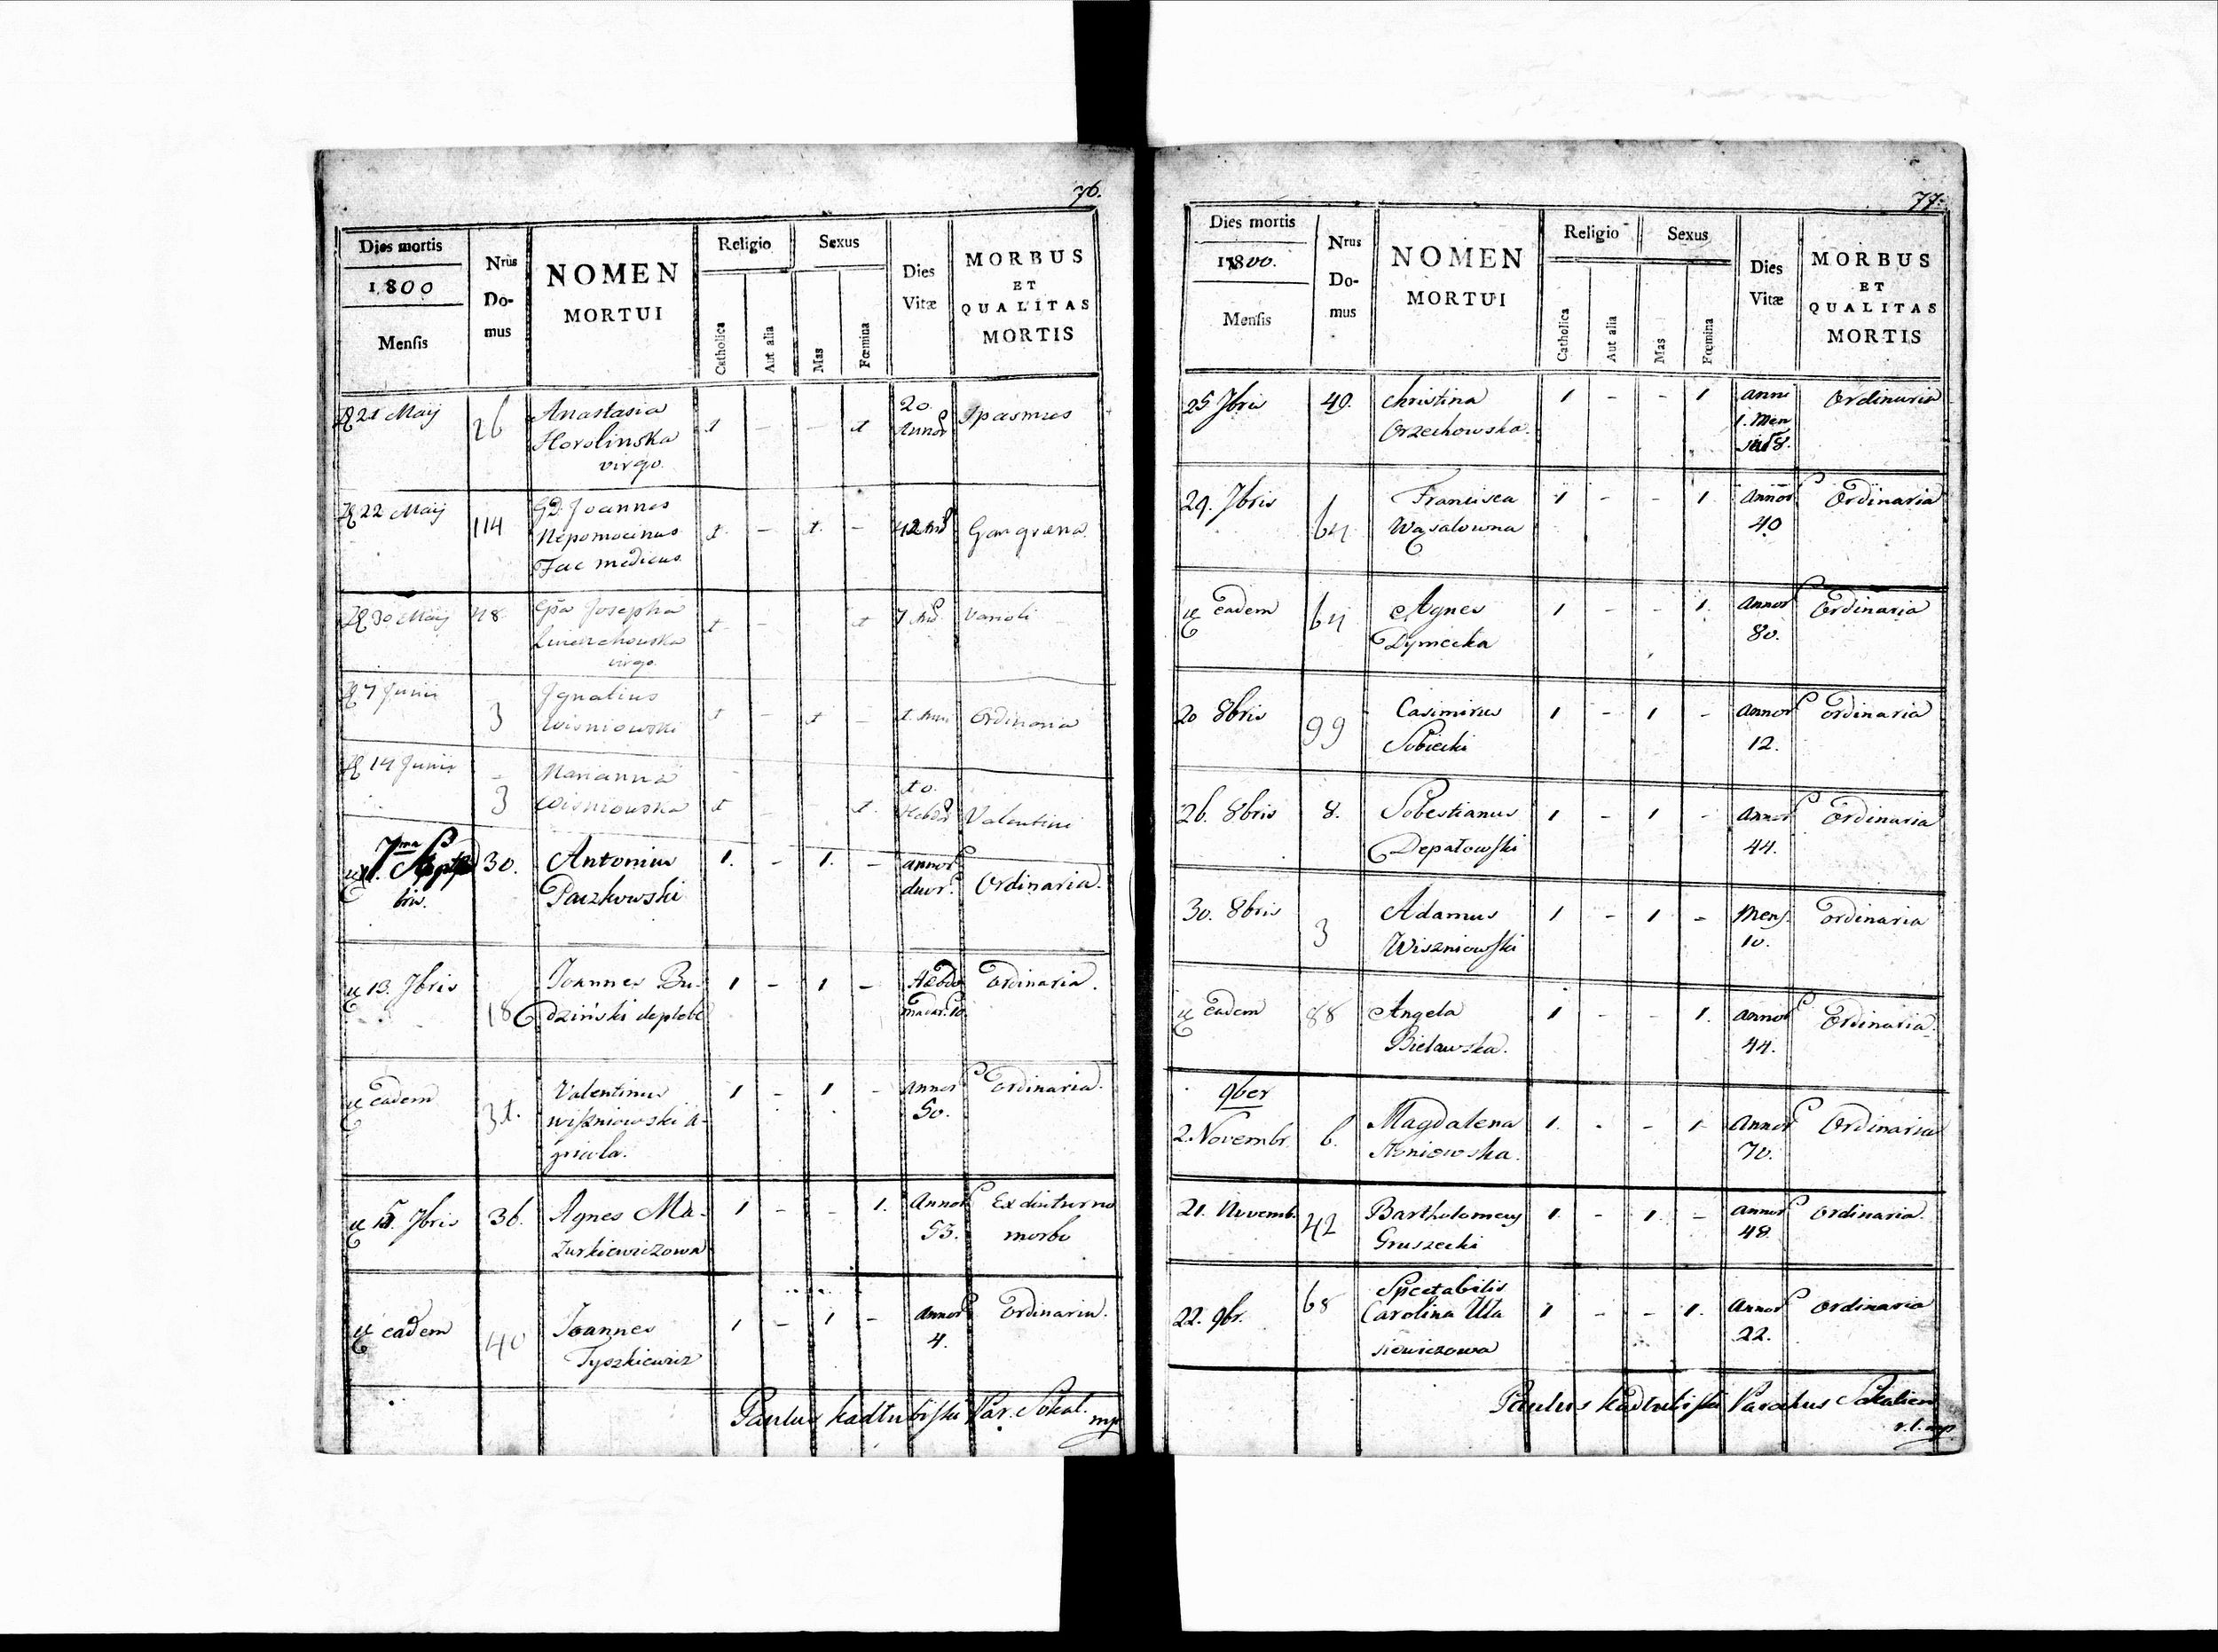 76.
Dies mortis
1800
Mensis
Nrus
Do-
mus
NOMEN
MORTUI
Religio
Catholica
Aut alia
Sexus
Mas
Fœmina
Dies
Vitæ
MORBUS
ET
QUALITAS
MORTIS
21 Maij 26 Anastasia 1 - - 1 20 Spasmus
Horolinska Annor
virgo.
22 Maij 114 GD. Joannes
Nepomocinus 1 - 1 - 42 An Gangræna
medicus
30 Maij 48 Gsa Josepha 1 - - 1 7 An Varioli
virgo
7 Junii 3 Ignatius
Wisniowski 1 - 1 - 1. Anni Ordinaria
14 Junii 3 Marianna 10.
Wisniowska 1 - - 1. Hebdo Valentini
7ma Septem
bris. 30. Antonius 1. - 1. - annor Ordinaria.
Paczkowski duor.
13. 7bris 18 Joannes Bu- 1 - 1 - Hebdo Ordinaria.
dziński de plebe madar. 10.
eadem 31. Valentinus 1 - 1 - Annor Ordinaria.
wiszniowski a- 50.
gricola.
15. 7bris 36. Agnes Ma- 1 - - 1. Annor Ex diuturno
zurkiewiczowa 53. morbo
eadem 40 Joannes 1 - 1 - Annor Ordinaria.
Tyszkiewicz 4.
Paulus Kadłubiski Par. Sokal. mp
77.
Dies mortis
1800.
Mensis
Nrus
Do-
mus
NOMEN
MORTUI
Religio
Catholica
Aut alia
Sexus
Mas
Fœmina
Dies
Vitæ
MORBUS
ET
QUALITAS
MORTIS
25 7bris 49. Christina 1 - - 1 anni Ordinaria
Orzechowska. 1. Men
sium 8.
29. 7bris 64 Francisca 1 - - 1 Annor Ordinaria
Wąsalowna 40
eadem 64 Agnes 1 - - 1. Annor Ordinaria
Dymecka 80.
20 8bris 99 Casimirus 1 - 1 - Annor ordinaria
Sobiecki 12.
26. 8bris 8. Sobestianus 1 - 1 - Annor Ordinaria
Depatowski 44.
30. 8bris 3 Adamus 1 - 1 - Mens. ordinaria
Wiszniowski 10.
eadem 88 Angela 1 - - 1. Annor Ordinaria.
Bielawska. 44.
9ber
2. Novembr. 6. Magdalena 1. - - 1 Annor Ordinaria
Koniowska. 70.
21. Novemb. 42 Bartholomeus 1. - 1. - Annor ordinaria.
Gruszecki 48
22. 9br. 68 Spectabilis
Carolina Ula 1 - - 1. Annor ordinaria
siewiczowa 22.
Paulus Kadłubiski Parochus Sokalien
r.l. mp